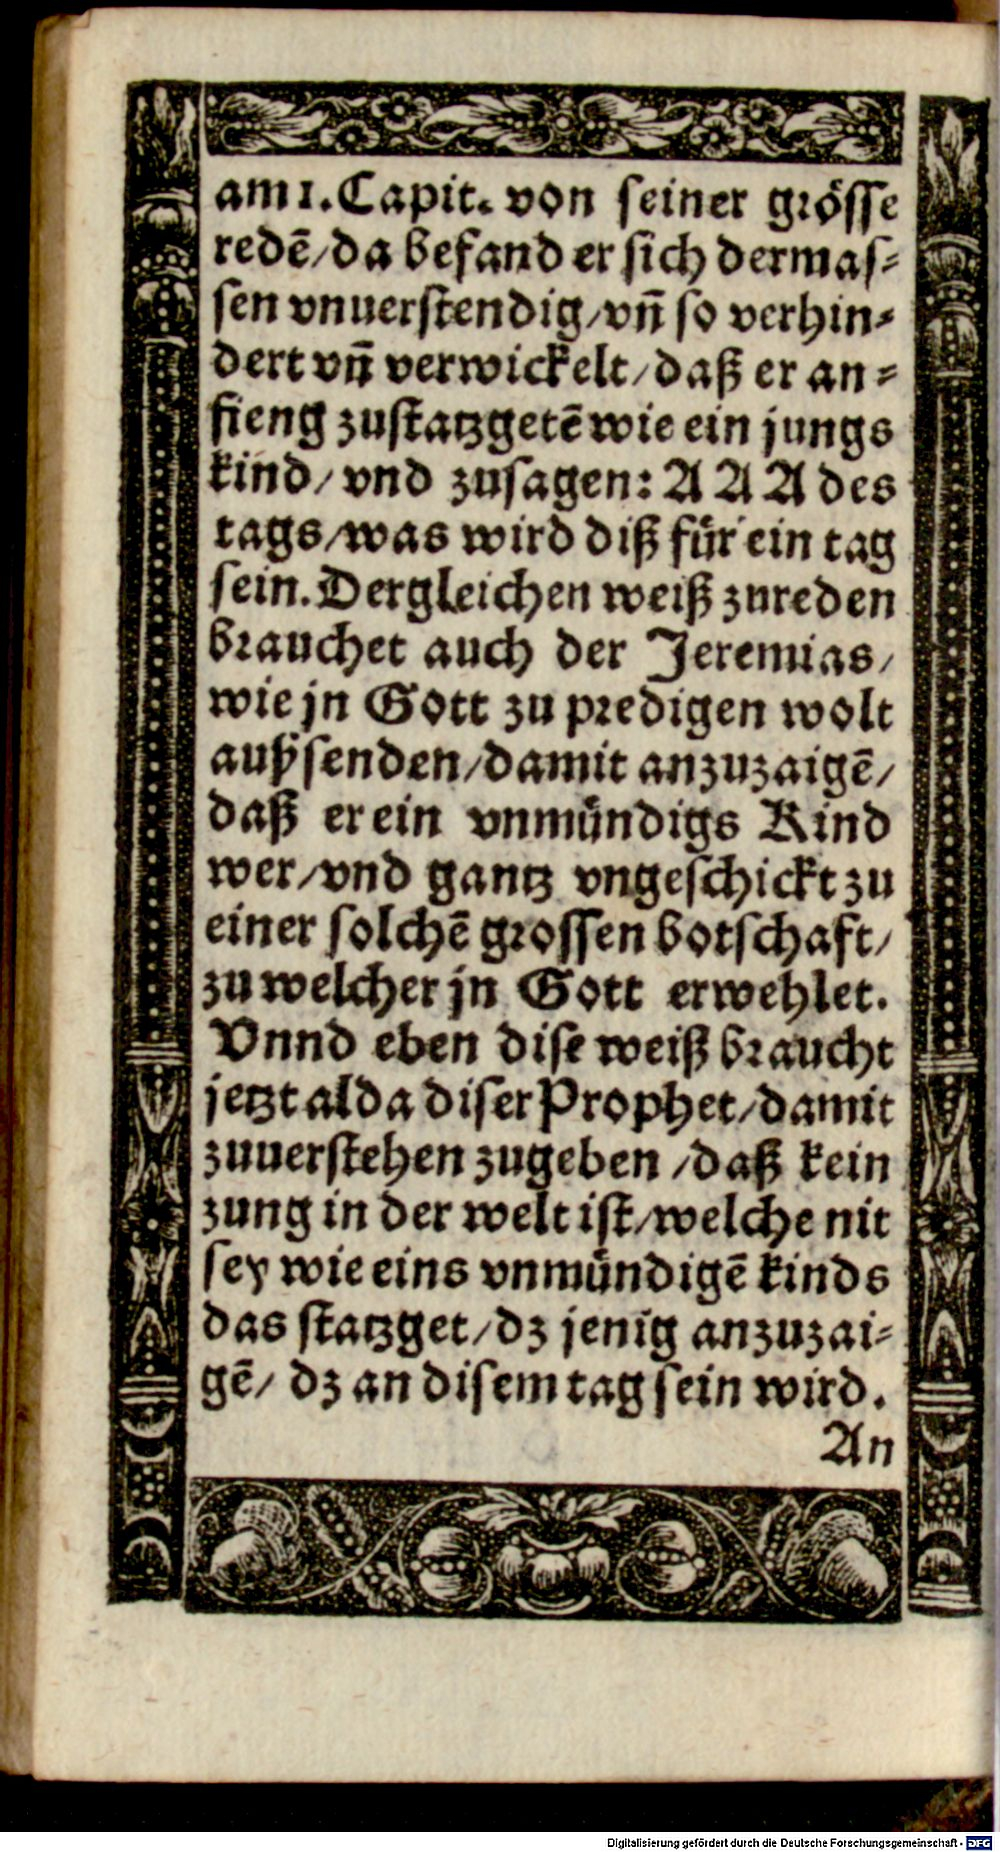 am 1. Capit. von seiner grösse
redē/da befand er sich dermas-
sen vnuerstendig/vn̄ so verhin-
dert vn̄ verwickelt/daß er an-
fieng zustatzgetē wie ein jungs
kind/vnd zusagen: A A A des
tags/was wird diß für ein tag
sein. Dergleichen weiß zureden
brauchet auch der Jeremias/
wie jn Gott zu predigen wolt
außsenden/damit anzuzaigē/
daß er ein vnmündigs Kind
wer/vnd gantz vngeschickt zu
einer solchē grossen botschaft/
zu welcher jn Gott erwehlet.
Vnnd eben dise weiß braucht
jetzt alda diser Prophet/damit
zuuerstehen zugeben/daß kein
zung in der welt ist/welche nit
sey wie eins vnmündigē kinds
das statzget/dz jenig anzuzai-
gē/ dz an disem tag sein wird.
An
Digitalisierung gefördert durch die Deutsche Forschungsgemeinschaft - DFG